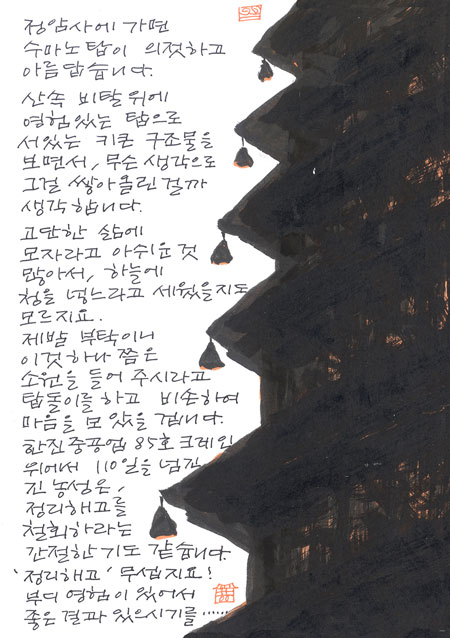 정암사에 가면
수마노탑이 의젓하고
아름답습니다.
산속 비탈위에
영험있는 탑으로
서있는 키큰 구조물을
보면서, 무슨 생각으로
그걸 쌓아올린 걸까
생각합니다.
고단한 삶에
모자라고 아쉬운 것
많아서, 하늘에
청을 넣느라고 세웠을지도
모르지요.
제발 부탁이니
이것 하나쯤은
소원을 들어 주시라고
탑돌이를 하고 비손하여
마음을 모았을 겁니다.
한진중공업 85호 크레인
위에서 110일을 넘긴
긴 농성은,
정리해고를
철회하라는
간절한 기도 같습니다
'정리해고' 무섭지요!
부디 영험이 있어서
좋은 결과 있으시기를……